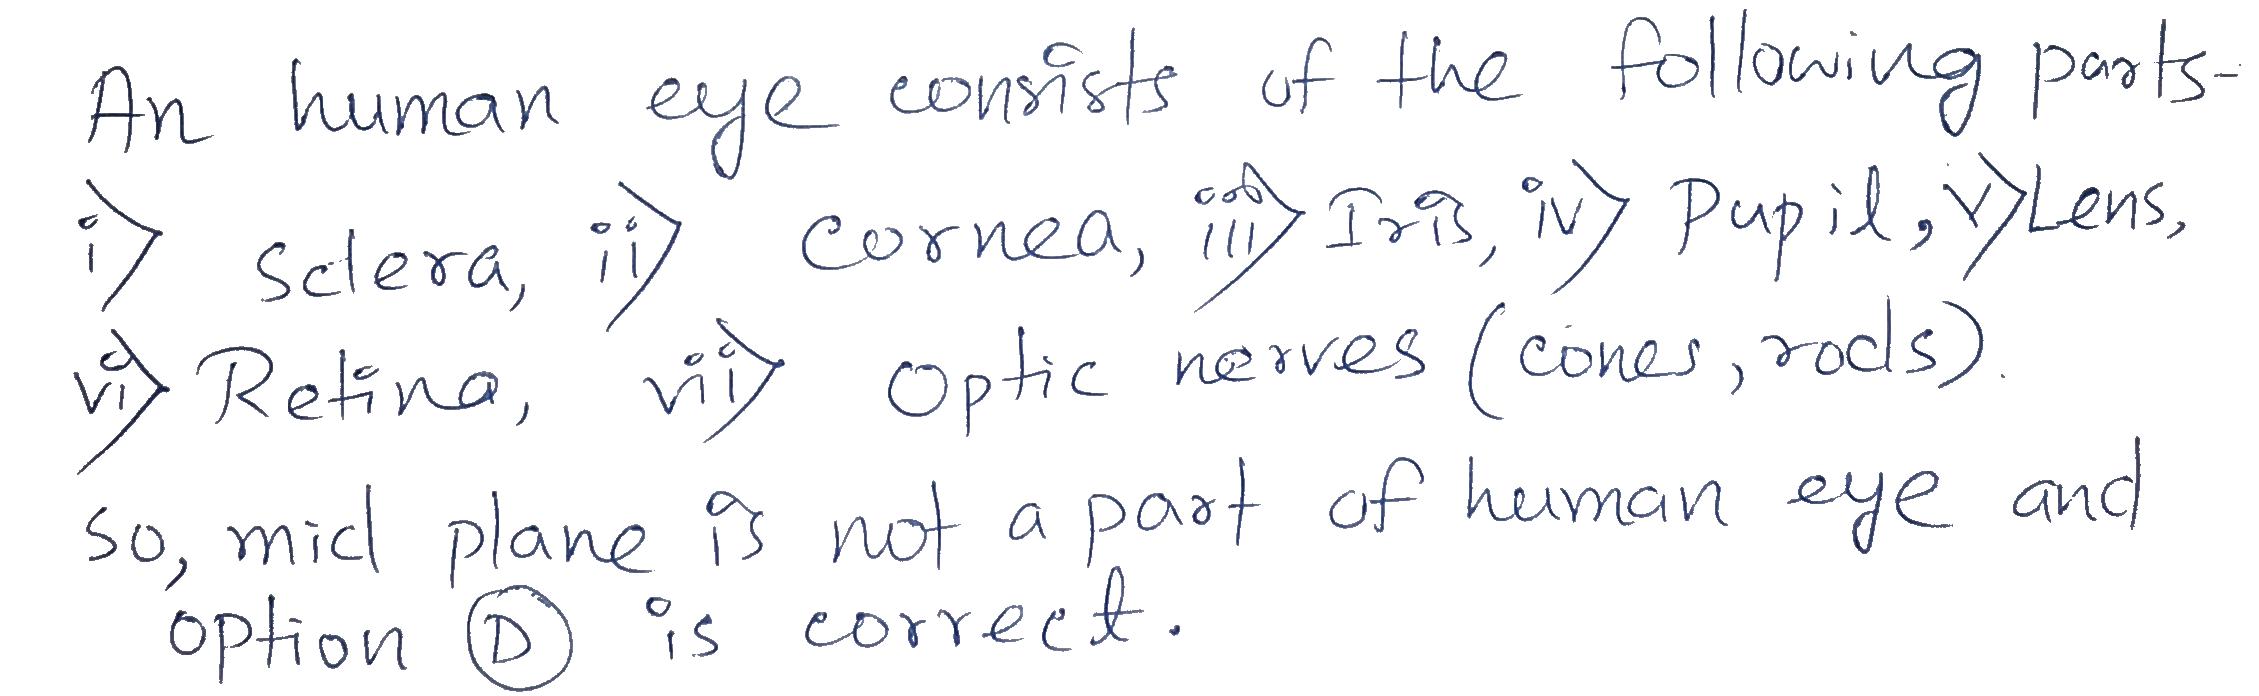 An human eye consists of the following parts-
i) Sclera, ii) Cornea, iii) Iris, iv) Pupil, v) Lens,
vi) Retina, vii) Optic nerves (cones, rods).
So, mid plane is not a part of human eye and
option D is correct.